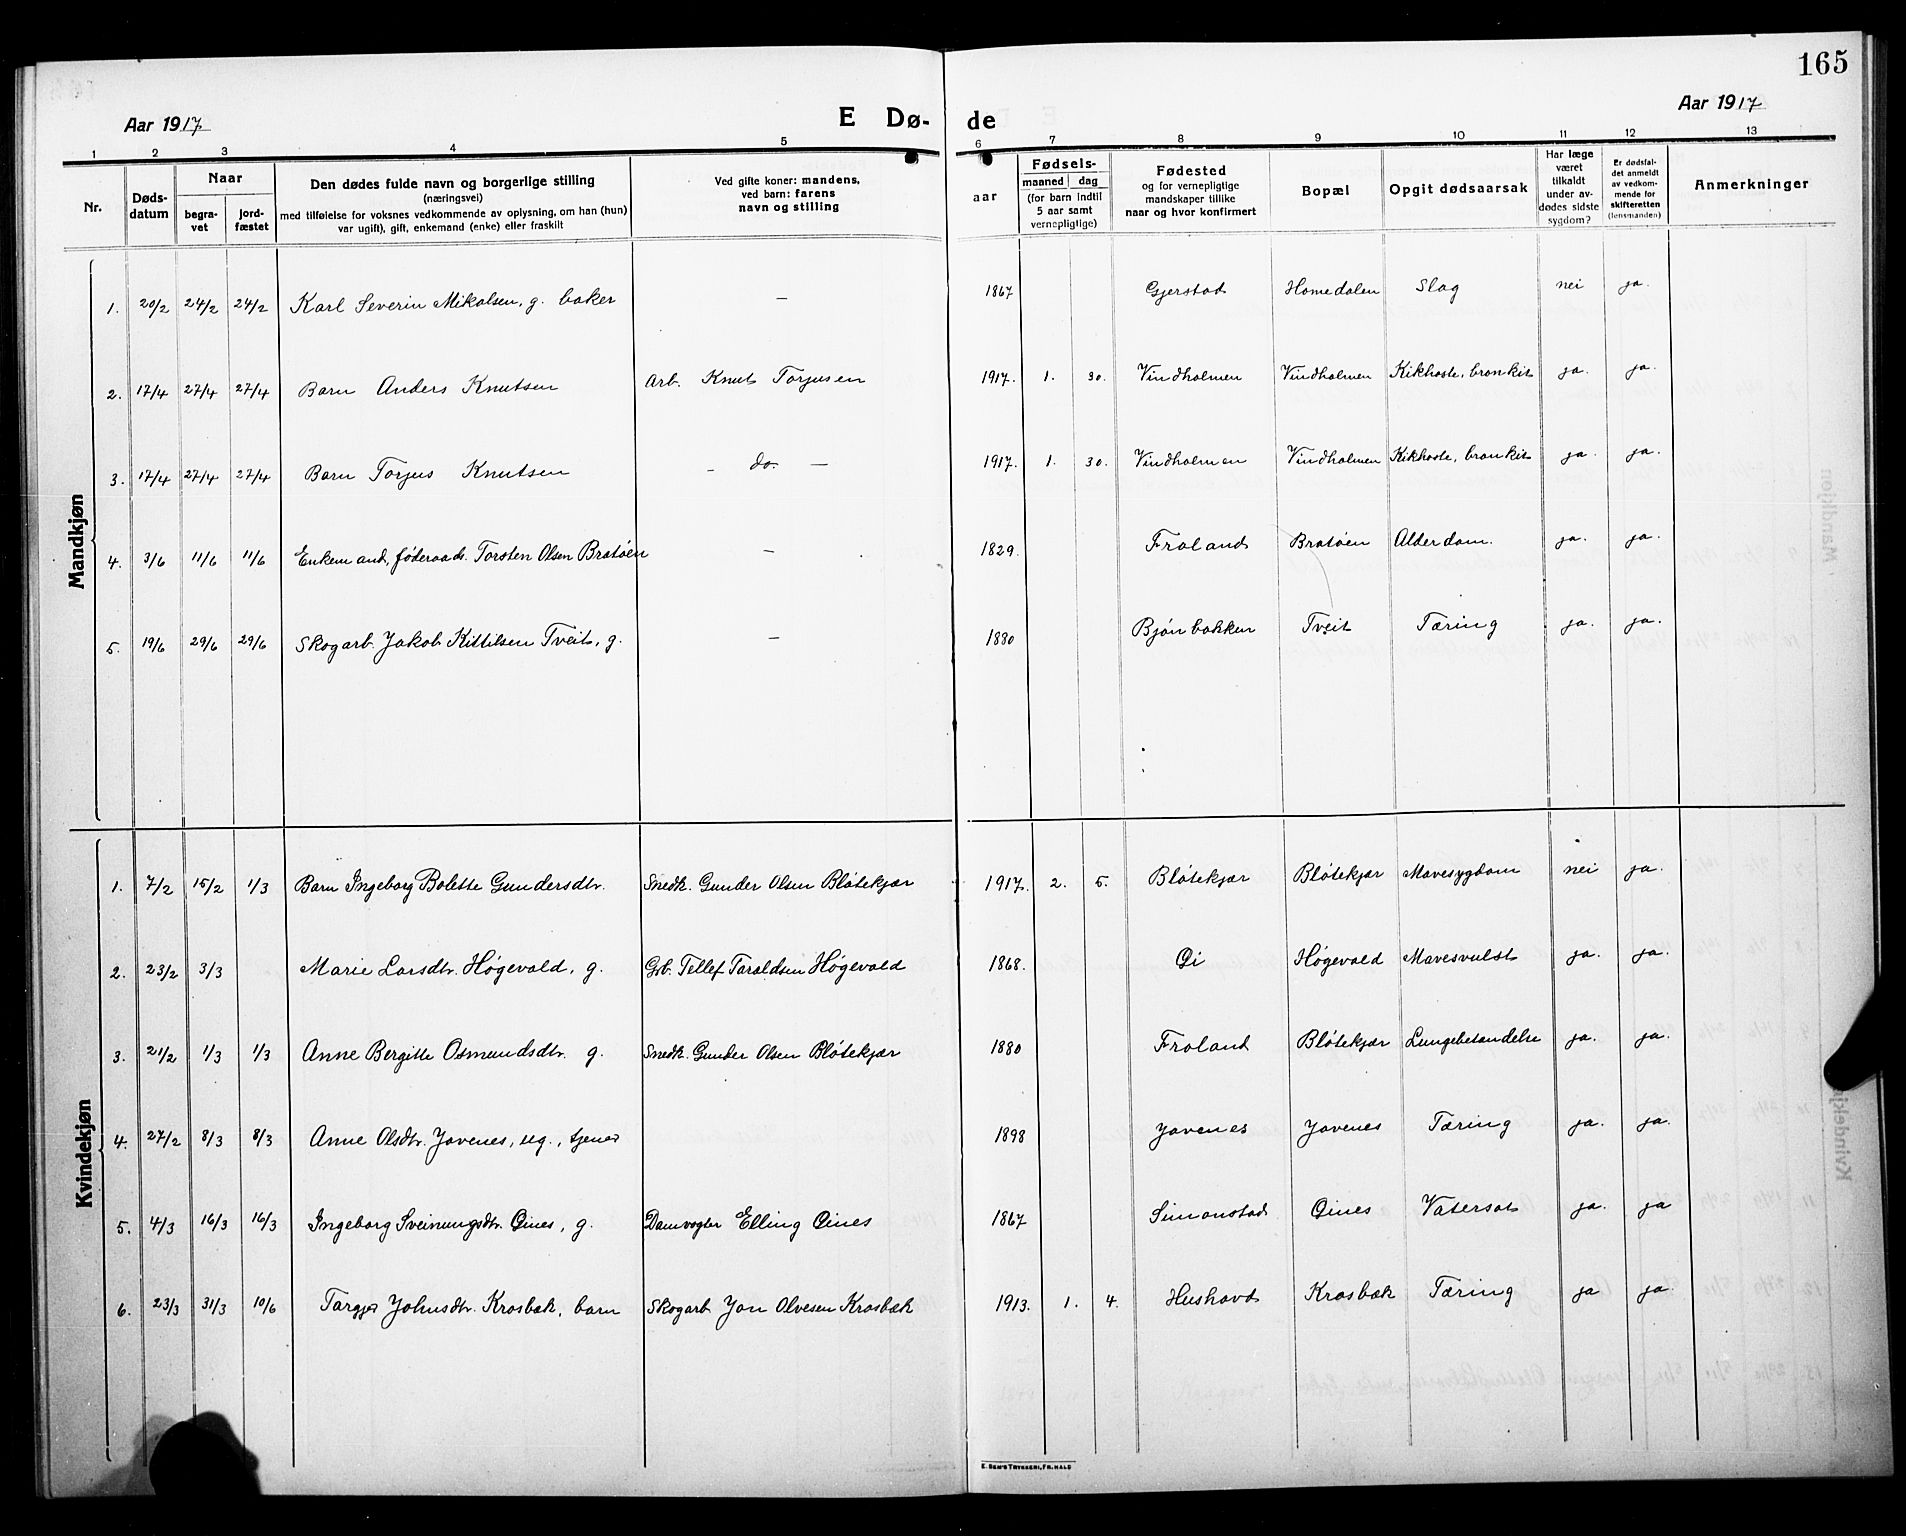 165
Aar 1917 E Dø- de Aar 1917
1 2 3 4 5 6 7 8 9 10 11 12 13
Nr. Døds-datum Naar begra-vet jord-fæstet Den dødes fulde navn og borgerlige stilling (næringsvei) med tilføielse for voksnes vedkommende av oplysning, om han (hun) var ugift), gift, enkemand (enke) eller fraskilt Ved gifte koner: mandens, ved barn: farens navn og stilling Fødsels- aar maaned dag (for barn indtil 5 aar samt vernepligtige) Fødested og for vernepligtige mandskaper tillike naar og hvor konfirmert Bopæl Opgit dødsaarsak Har læge været tilkaldt under av-dødes sidste sygdom? Er dødsfal-det anmeldt av vedkom-mende for skifteretten (lensmanden) Anmerkninger
Mandkjøn
1. 20/2 24/2 24/2 Karl Severin Mikalsen, g. baker — 1867 Gjerstad Homedalen Slag nei ja.
2. 17/4 27/4 27/4 Barn Anders Knutsen Arb. Knut Torjusen 1917. 1. 30. Vindholmen Vindholmen Kikhoste, bronkit ja. ja.
3. 17/4 27/4 27/4 Barn Torjus Knutsen – do. – 1917. 1. 30. Vindholmen Vindholmen Kikhoste, bronkit ja. ja.
4. 3/6 11/6 11/6 Enkemand, føderaads. Torsten Olsen Bratøen — 1829. Froland Bratøen Alderdom. ja. ja.
5. 19/6 29/6 29/6 Skogarb. Jakob Kittilsen Tveit, g. — 1880 Bjønbakken Tveit Tæring ja. ja.
Kvindekjøn
1. 7/2 15/2 1/3 Barn Ingeborg Bolette Gundersdtr. Snedk. Gunder Olsen Bløtekjær 1917. 2. 5. Bløtekjær Bløtekjær Mavesygdom nei ja.
2. 23/2 3/3 Marie Larsdtr. Høgevold, g. Gb. Tellef Taraldsen Høgevold 1868. Øi Høgevold Mavesvulst ja. ja.
3. 21/2 1/3 1/3 Anne Bergitte Osmundsdtr. g. Snedk. Gunder Olsen Bløtekjær 1880 Froland Bløtekjær Lungebetændelse ja. ja.
4. 27/2 8/3 8/3 Anne Olsdtr. Jovenes, ug., tjener 1898 Jovenes Jovenes Tæring ja. ja.
5. 4/3 16/3 16/3 Ingeborg Sveinungsdtr. Øines, g. Damvogter Elling Øines 1867 Simonstad Øines Vatersot ja. ja
6. 23/3 31/3 10/6 Targjer Johnsdtr. Krosbæk, barn Skogarb Jon Olvesen Krosbæk 1913. 1. 4. Hushovd Krosbæk Tæring ja ja.
E. SEM'S TRYKKERI, FR.HALD